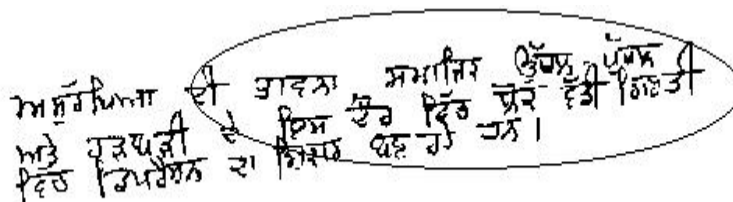 ਅਸੁਰੱਖਿਆ ਦੀ ਭਾਵਨਾ ਸਮਾਜਿਕ ਉੱਥਲ ਪੁੱਥਲ
ਅਤੇ ਹੜਬੜੀ ਦੇ ਇਸ ਦੌਰ ਵਿੱਚ ਲੋਕ ਵੱਡੀ ਗਿਣਤੀ
ਵਿੱਚ ਡਿਪਰੈਸ਼ਨ ਦਾ ਸ਼ਿਕਾਰ ਬਣ ਰਹੇ ਹਨ।